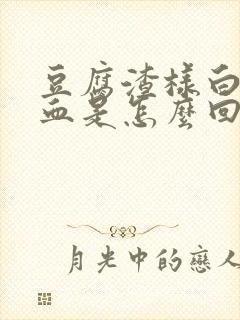 豆腐渣樣白
血是怎麼回
月光中的戀人